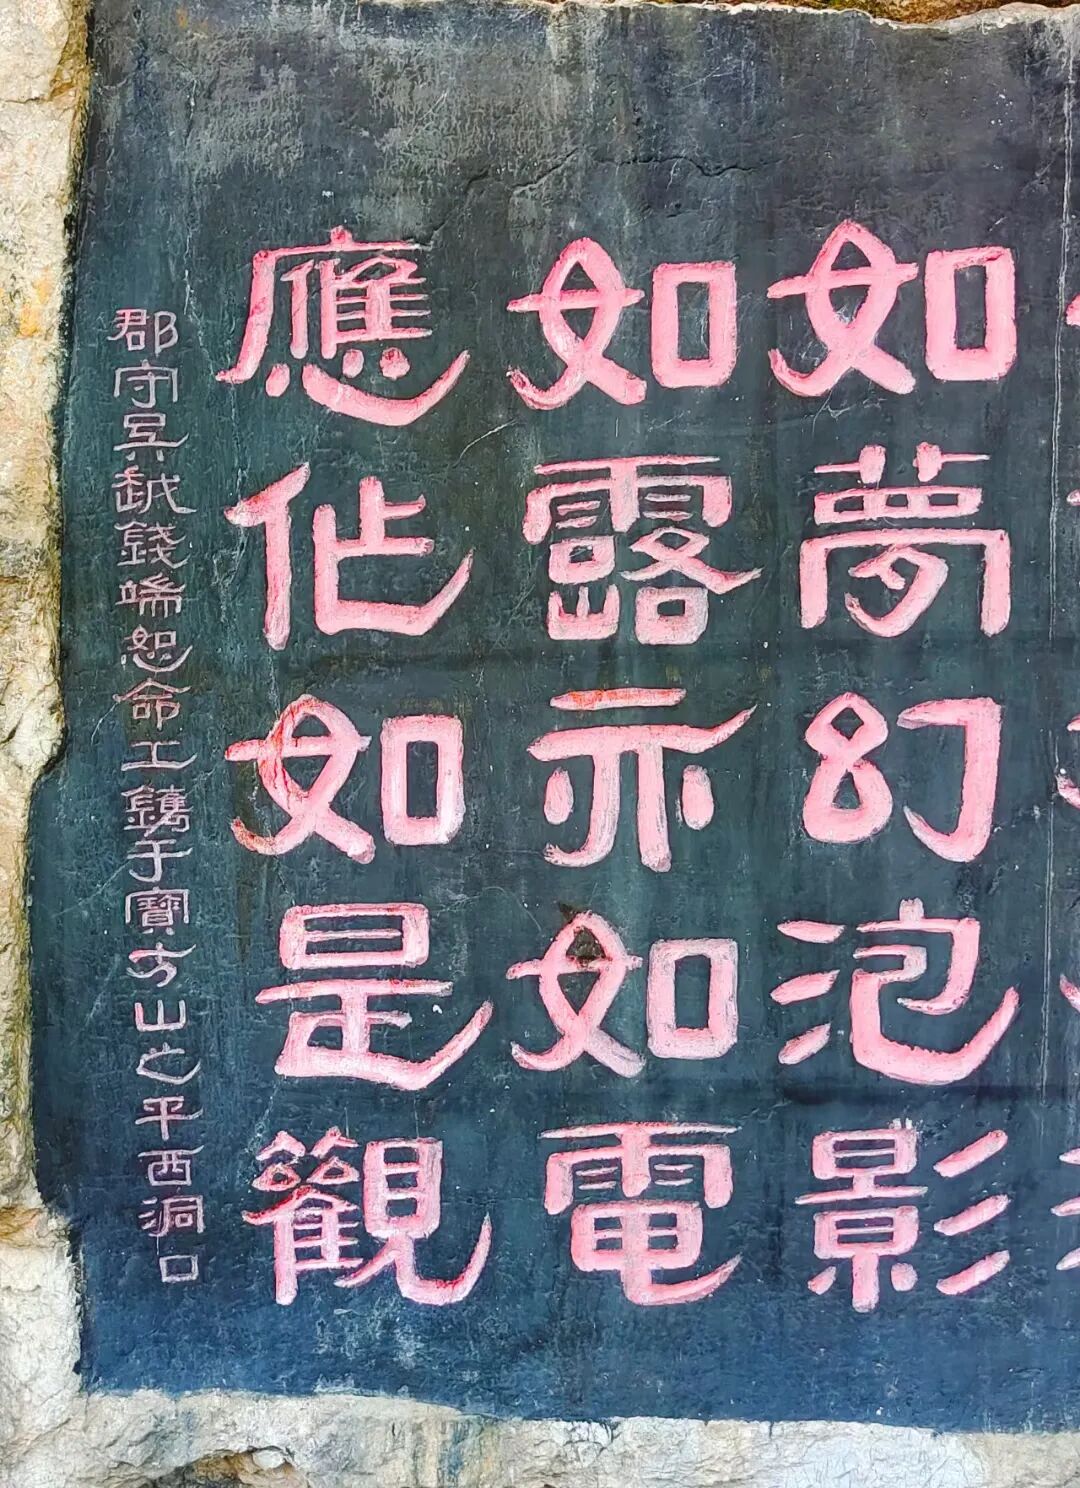 如夢幻泡影
如露亦如電
應作如是觀
郡守吴越錢端恕命工鐫于寶方山之平西洞口